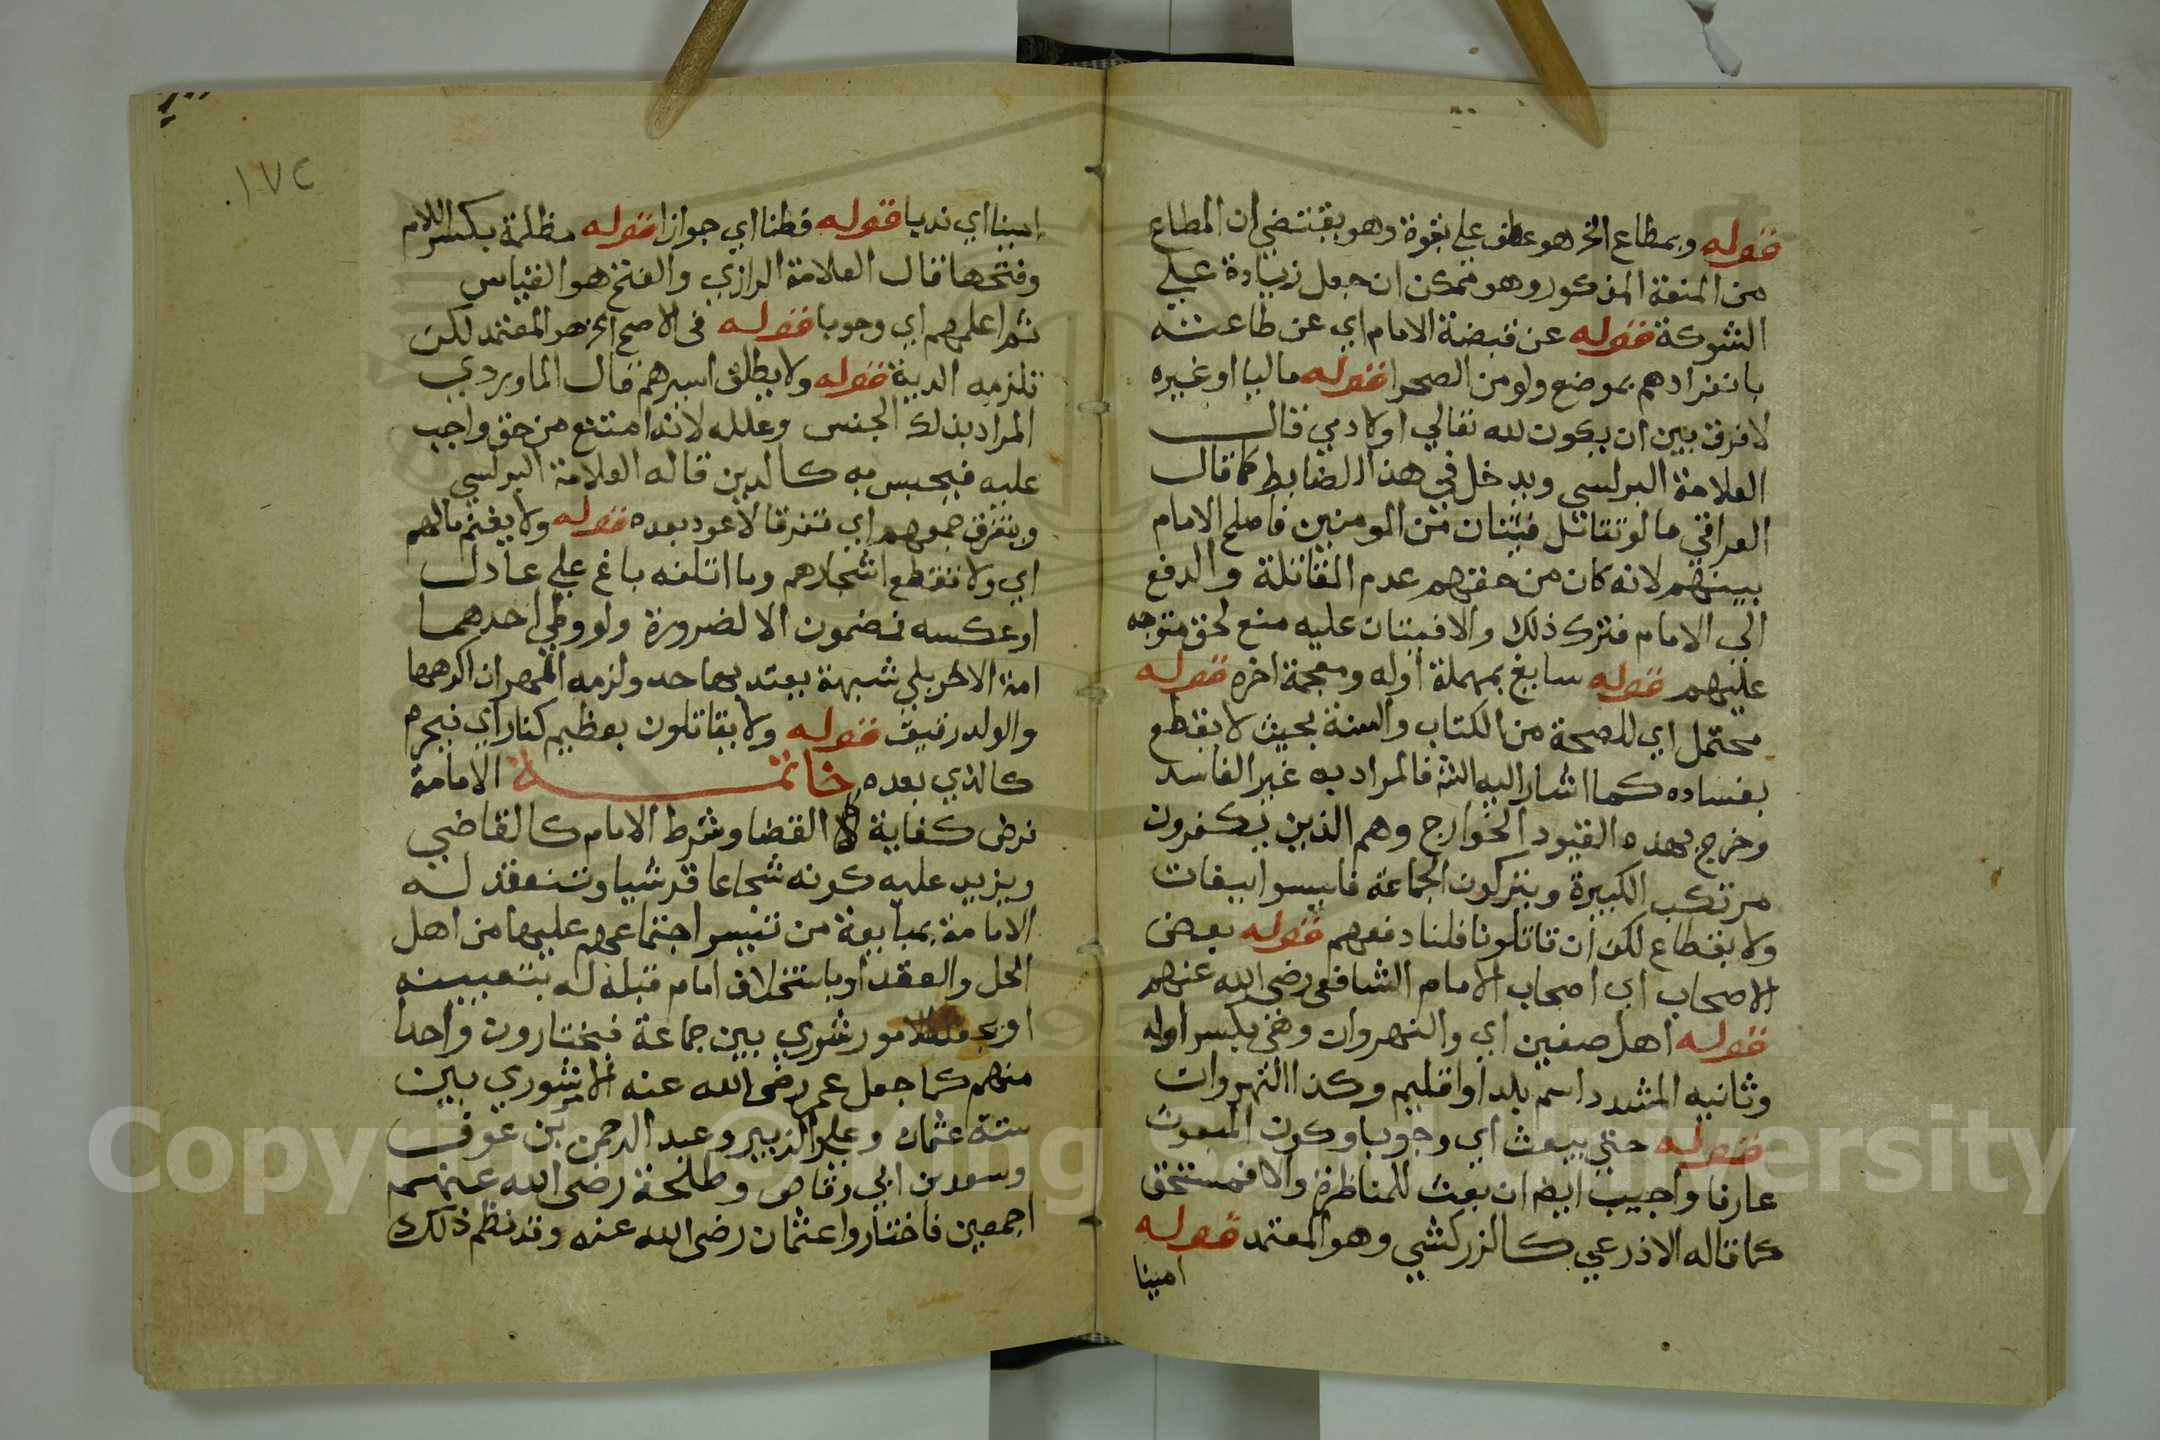 قوله وبمطاع الخ هو عطف علي بقوة وهو يقتضي ان المطاع
من المنعة المذكور وهو ممكن ان جعل زيادة علي
الشوكة قوله عن قبضة الامام اي عن طاعته
بانفرادهم بموضع ولو من الصحرا قوله ماليا او غيره
لا فرق بين ان يكون لله تعالي او لادمي قال
العلامة البرلسي ويدخل في هذا الضابط كما قال
العراقي ما لو تقاتل فئتان من المومنين فاصلح الامام
بينهم لانه كان من حقهم عدم المقاتلة والدفع
الي الامام فترك ذلك والافتتان عليه منع لحق متوجه
عليهم قوله سابغ بمهملة اوله ومعجمة اخره قوله
محتمل اي للصحة من الكتاب والسنة بحيث لا يقطع
بفساده كما اشار اليه الش فالمراد به غير الفاسد
وخرج بهذه القيود الخوارج وهم الذين يكفرون
مرتكب الكبيرة ويتركون الجماعة فليسوا ببغات
ولا بقطاع لكن ان قاتلونا فلنا دفعهم قوله بعض
الاصحاب اي اصحاب الامام الشافعي رضي الله عنهم
قوله اهل صفين اي والنهروان وهي بكسر اوله
وثانيه المشدد اسم بلد او اقليم وكذا النهروان
قوله حتي يبعث اي وجوبا وكون المبعوث
عارفا واجيب ايضا ان بعث للمناظرة والا فمستحق
كما قاله الاذرعي كالزركشي وهو المعتمد قوله
امينا
١٧٢
امينا اي ندبا قوله فطنا اي جوازا قوله مظلمة بكسر اللام
وفتحها قال العلامة الرازي والفتح هو القياس
ثم اعلمهم اي وجوبا قوله في الاصح الخ هو المعتمد لكن
تلزمه الدية قوله ولا يطلق اسيرهم قال الماوردي
المراد بذلك الجنس وعلله لانه امتنع من حق واجب
عليه فيحبس به كالدين قاله العلامة البرلسي
ويتفرق جمعهم اي تفرقا لا عود بعده قوله ولا يغنم مالهم
اي ولا تقطع اشجارهم وما اتلفه باغ علي عادل
او عكسه مضمون الا لضرورة ولو وطي احدهما
امة الاخر بلي شبهة يعتد بها حد ولزمه المهر ان اكرهها
والولد رقيق قوله ولا يقاتلون بعظيم كنار اي فيحرم
كالذي بعده خاتمة الامامة
فرض كفاية كالقضا وشرط الامام كالقاضي
ويزيد عليه كونه شجاعا قرشيا وتنعقد له
الامامة بمبايعة من تيسر اجتماعهم عليها من اهل
الحل والعقد او باستخلاف امام قبله له بتعيينه
او بجعله الامور شوري بين جماعة فيختارون واحدا
منهم كما جعل عمر رضي الله عنه الامر شوري بين
ستة عثمان وعلي والزبير وعبد الرحمن بن عوف
وسعد بن ابي وقاص وطلحة رضي الله عنهم
اجمعين فاختاروا عثمان رضي الله عنه وقد نظم ذلك
Copyright © King Saud University